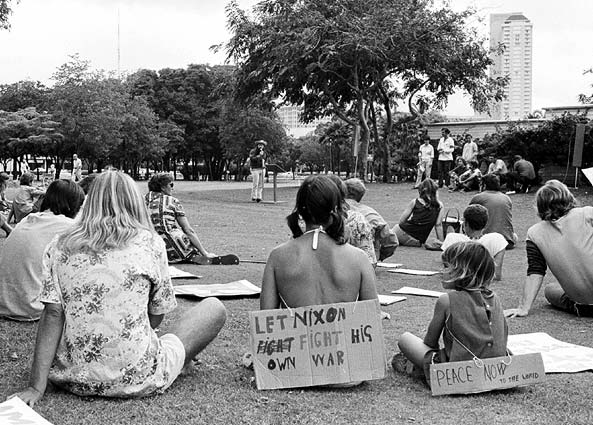 LET NIXON
FIGHT FIGHT HIS
OWN WAR
PEACE NOW TO THE WORLD